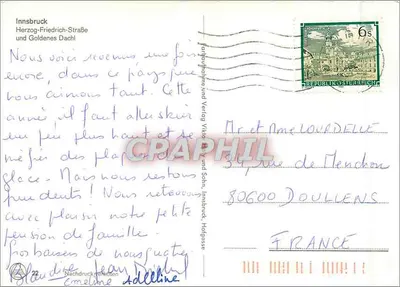 Innsbruck
Herzog-Friedrich-Straße
und Goldenes Dachl
Nous voici revenus une fois
encore, dans ce pays que
nous aimons tant. Cette
année, il faut aller skier
un peu plus haut et se
méfier des plaques de
glace. Mais nous restons
prudents! Nous retrouvons
avec plaisir notre petite
pension de famille.
Gros baisers de nous quatre
Claudine Jean
Emeline Adeline
22
Nachdruck verboten
und Sohn, Innsbruck, Hofgasse
6s
REPUBLIK ÖSTERREICH
CPAPHIL
Mr et Mme LOURDELLE
34, rue de Menchon
80600 DOULLENS
FRANCE